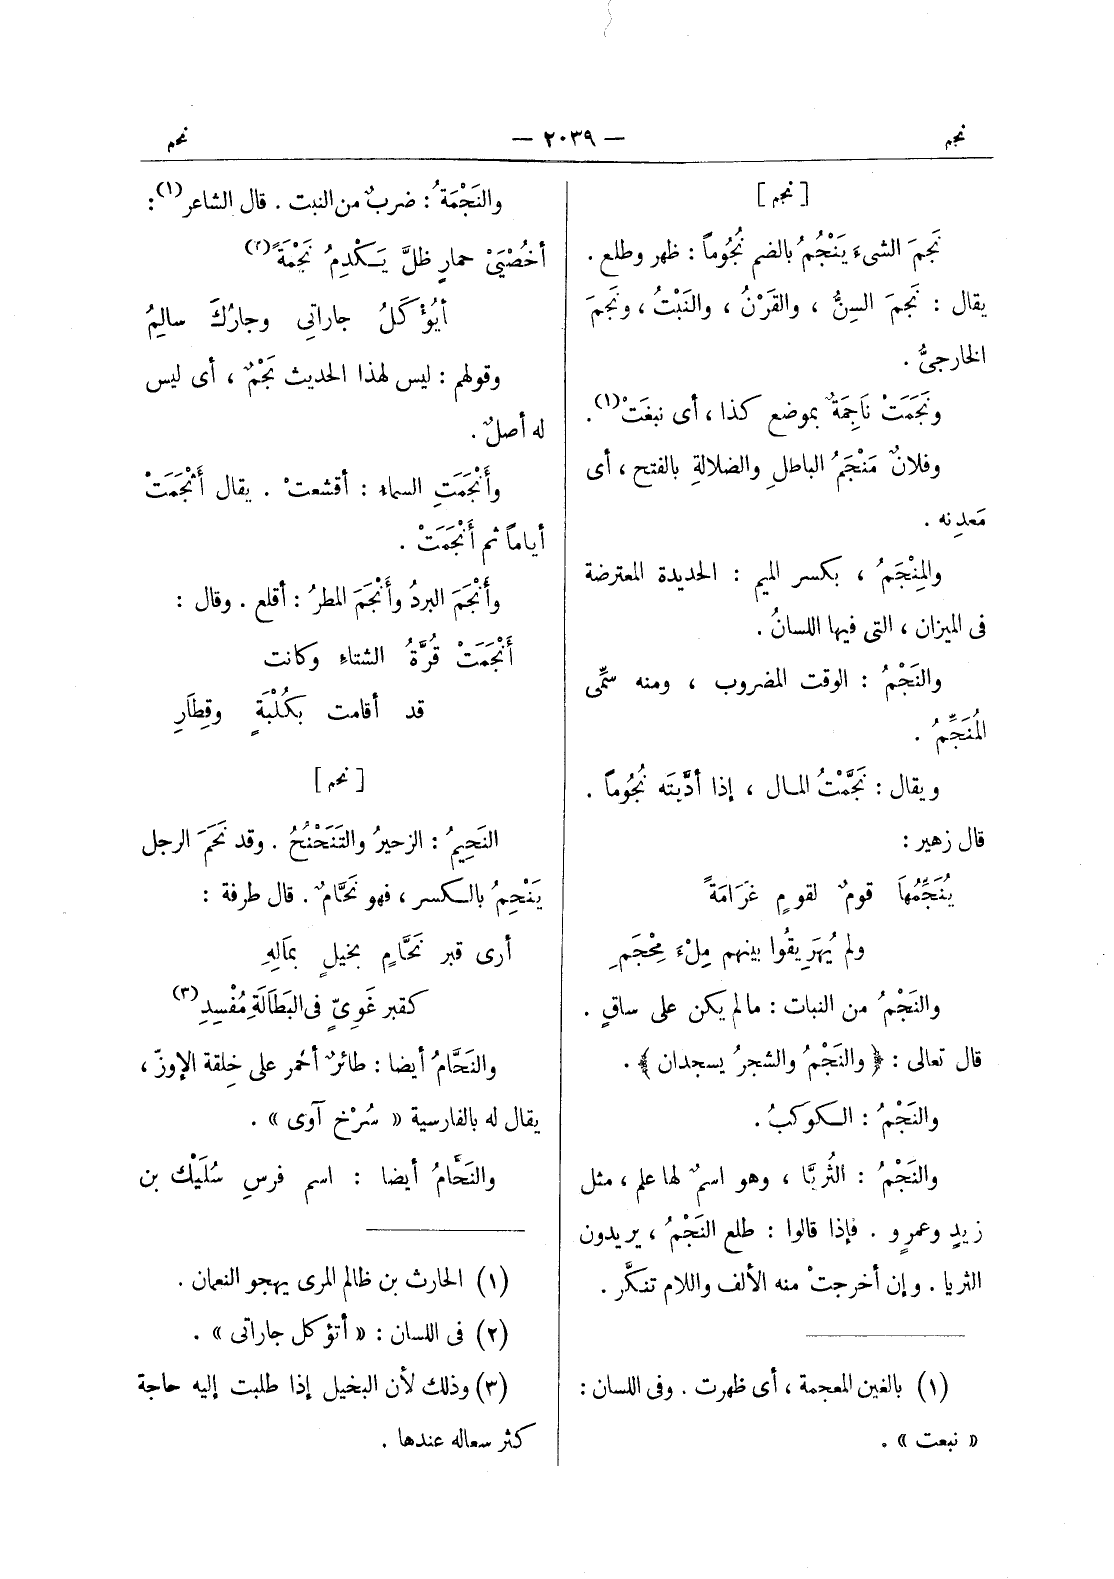 نجم
— ٢٠٣٩ —
نحم
[ نجم ]
نَجَمَ الشىءَ يَنْجُمُ بالضم نُجُوماً : ظهر وطلع .
يقال : نَجَمَ السِنُّ ، والقَرْنُ ، والنَبْتُ ، ونَجَمَ
الخارجىُّ .
ونَجَمَتْ نَاجِمَةٌ بموضع كذا ، أى نبغَتْ (١) .
وفلانٌ مَنْجَمُ الباطلِ والضلالةِ بالفتح ، أى
مَعدِنه .
والمِنْجَمُ ، بكسر الميم : الحديدة المعترضة
فى الميزان ، التى فيها اللسانُ .
والنَجْمُ : الوقت المضروب ، ومنه سمِّى
المُنَجِّمُ .
ويقال : نَجَّمْتُ المال ، إذا أدَّيتَه نُجُوماً .
قال زهير :
يُنَجِّمُهاَ قومٌ لقومٍ غَرَامَةً
ولم يُهَرِيقُوا بينهم مِلْءَ مِحْجَمِ
والنَجْمُ من النبات : مالم يكن على ساقٍ .
قال تعالى : ﴿ والنَجْمُ والشجرُ يسجدان ﴾ .
والنَجْمُ : الكوكبُ .
والنَجْمُ : الثُريَّا ، وهو اسمٌ لها علم ، مثل
زيدٍ وعمرٍو . فإذا قالوا : طلع النَجْمُ ، يريدون
الثريا . وإن أخرجتْ منه الألف واللام تنكَّر .
(١) بالغين المعجمة ، أى ظهرت . وفى اللسان :
« نبعت » .
والنَجْمَةُ : ضربٌ من النبت . قال الشاعر (١) :
أخُصْيَىْ حمارٍ ظلَّ يَكْدِمُ نَجْمَةً (٢)
أيُؤْكَلُ جاراتى وجارُكَ سالِمُ
وقولهم : ليس لهذا الحديث نَجْمٌ ، أى ليس
له أصلٌ .
وأَنْجَمَتِ السماء : أقشعتْ . يقال أَثْجَمَتْ
أياماً ثم أَنْجَمَتْ .
وأَنْجَمَ البردُ وأَنْجَمَ المطرُ : أقلع . وقال :
أَنْجَمَتْ قُرَّةُ الشتاءِ وكانت
قد أقامت بكُلْبَةٍ وقِطَارِ
[ نحم ]
النَحِيمُ : الزحيرُ والتَنَحْنُحُ . وقد نَحَمَ الرجل
يَنْحِمُ بالكسر ، فهو نَحَّامٌ . قال طرفة :
أرى قبر نَحَّامٍ بخيلٍ بمَالِهِ
كقبر غَوِىٍّ فى البَطَالَةِ مُفْسِدِ (٣)
والنَحَّامُ أيضا : طائرٌ أحمر على خِلقة الإوزّ ،
يقال له بالفارسية « سُرْخ آوى » .
والنَحَّامُ أيضا : اسم فرسِ سُلَيْك بن
(١) الحارث بن ظالم المرى يهجو النعمان .
(٢) فى اللسان : « أتؤكل جاراتى » .
(٣) وذلك لأن البخيل إذا طلبت إليه حاجة
كثر سعاله عندها .